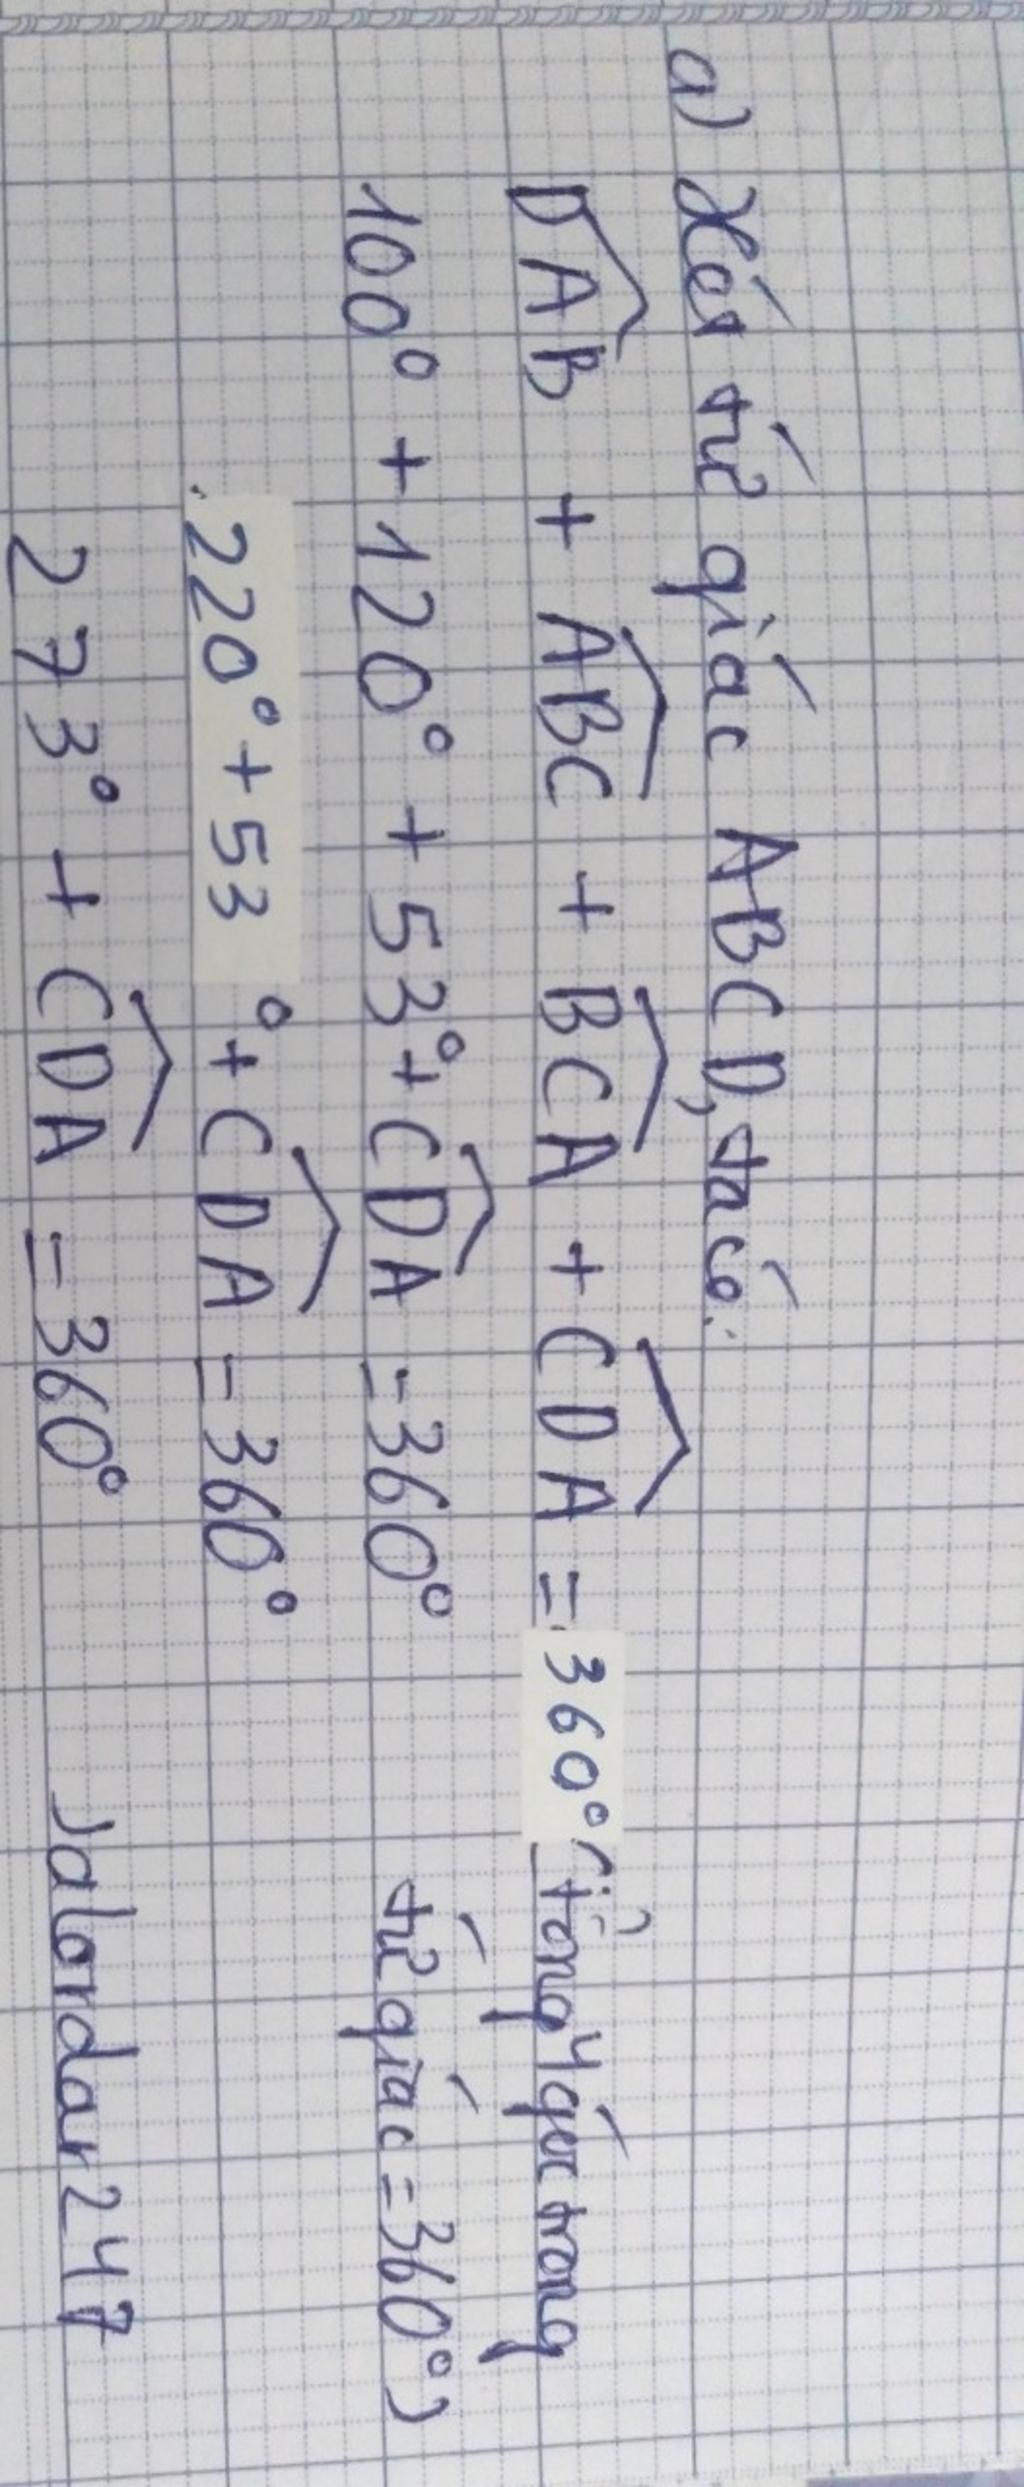 a) Xét tứ giác ABCD, ta có:
DAB + ABC + BCA + CDA = 360° (tổng 4 góc trong
100° + 120° + 53° + CDA = 360° tứ giác = 360°)
220° + 53° + CDA = 360°
273° + CDA = 360° Jalordar247